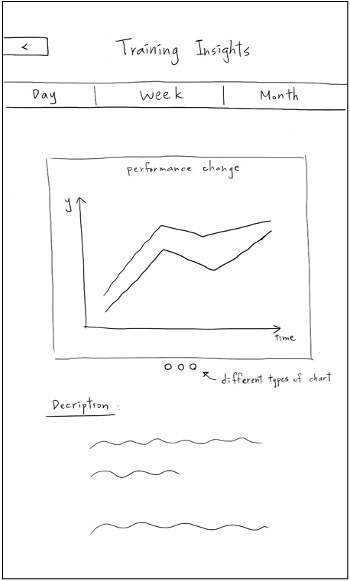 <
Training Insights
Day | Week | Month
performance change
y
time
different types of chart
Decription :